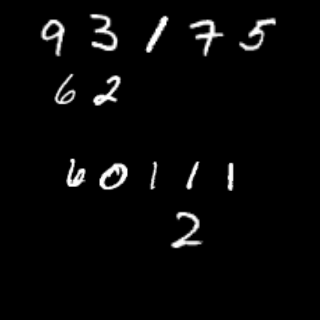 93175
62
60111
2